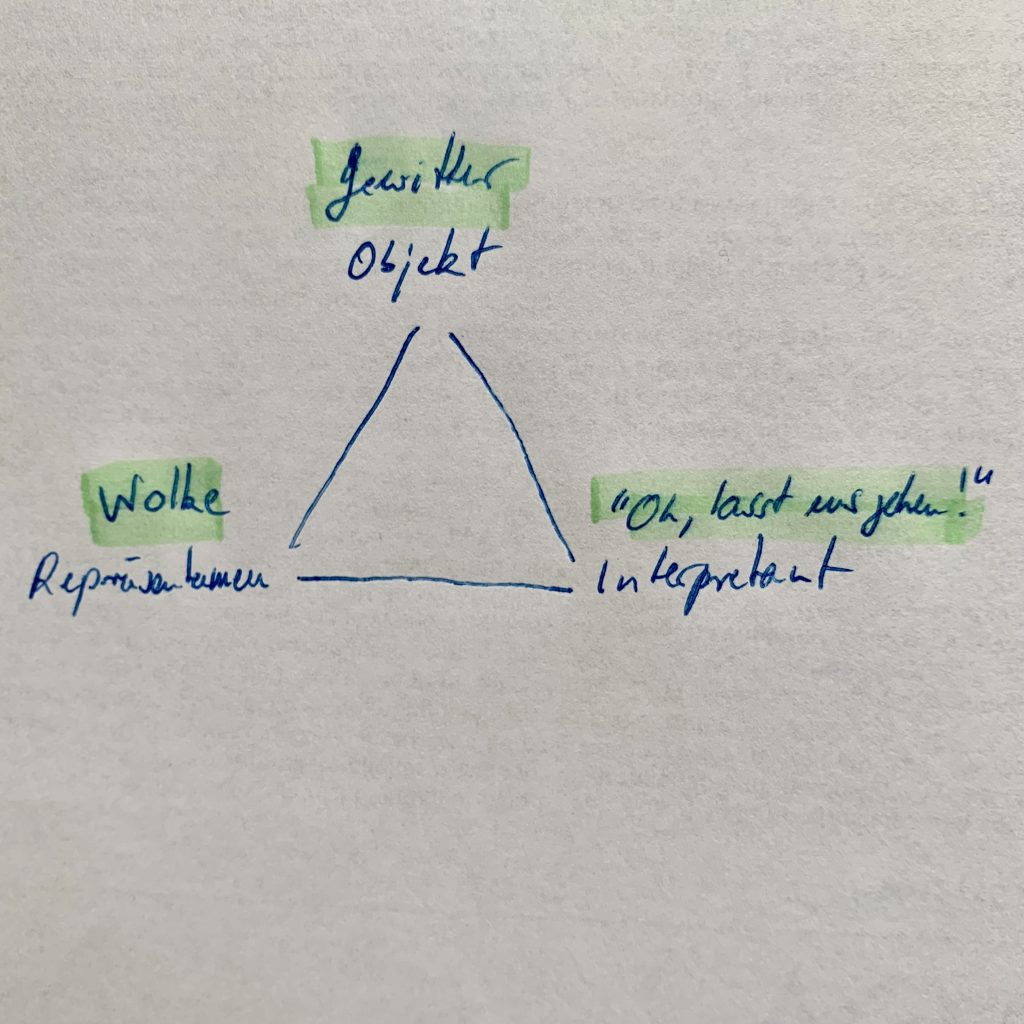 Gewitter
Objekt
Wolke
"Oh, lasst uns gehen!"
Repräsentamen
Interpretant